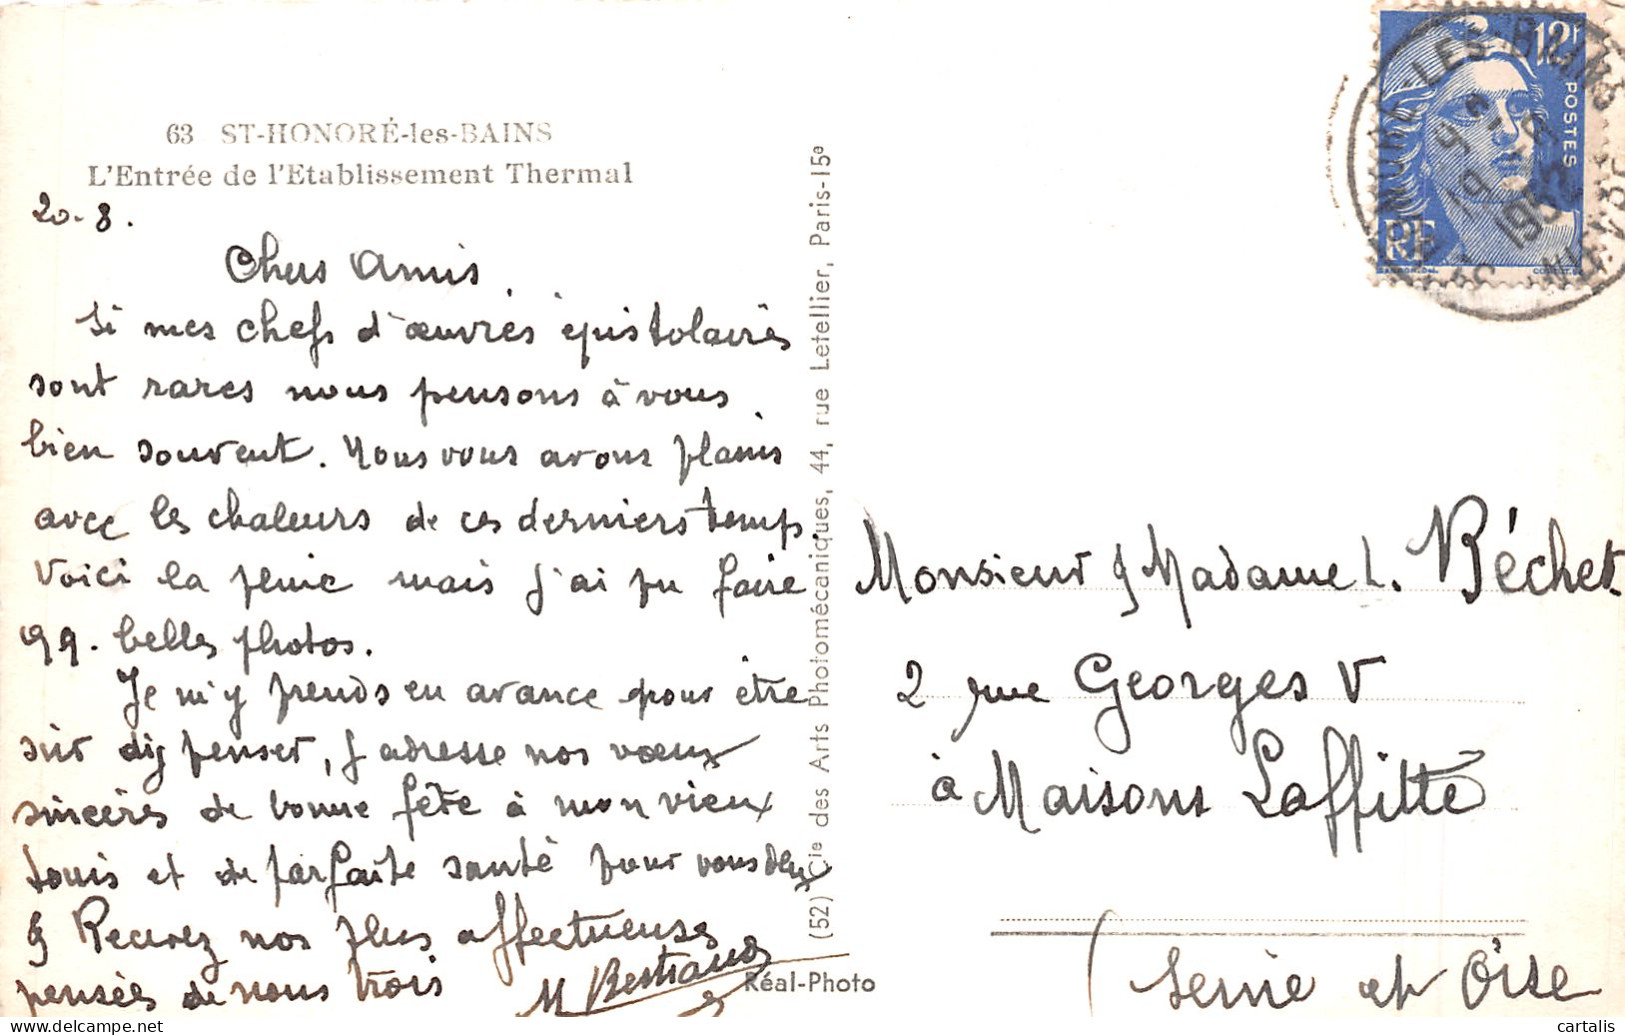 63 ST-HONORÉ-les-BAINS
L'Entrée de l'Etablissement Thermal
20-8.
Chers Amis,
Si mes chefs d'œuvres épistolaires
sont rares nous pensons à vous
bien souvent. Nous vous avons plains
avec les chaleurs de ces derniers temps.
Voici la pluie mais j'ai pu faire
qq. belles photos.
Je m'y prends en avance pour être
sûr d'y penser, j'adresse nos vœux
sincères de bonne fête à mon vieux
Louis et de parfaite santé pour vous deux
& Recevez nos plus affectueuses
pensées de nous trois
M Bertrand
(52) Cie des Arts Photomécaniques, 44, rue Letellier, Paris-15e
Réal-Photo
12F
POSTES
RF
GANDON. Del.
LES-BAINS
19 - 8
1953
NIEVRE
Monsieur & Madame L. Béchet
2 rue Georges V
à Maisons Laffitte
(Seine et Oise
cartalis